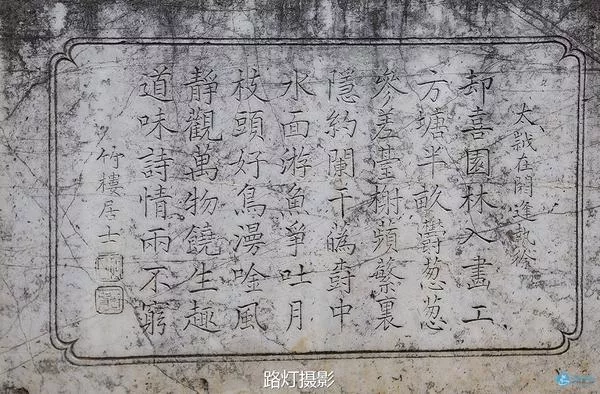 太歲在閼逢執徐
却喜園林入畫工
方塘半畝鬱葱葱
參差臺榭蘋蘩裏
隱約闌干中
水面游魚爭吐月
枝頭好鳥漫唫風
靜觀萬物饒生趣
道味詩情兩不窮
竹樓居士
路灯摄影